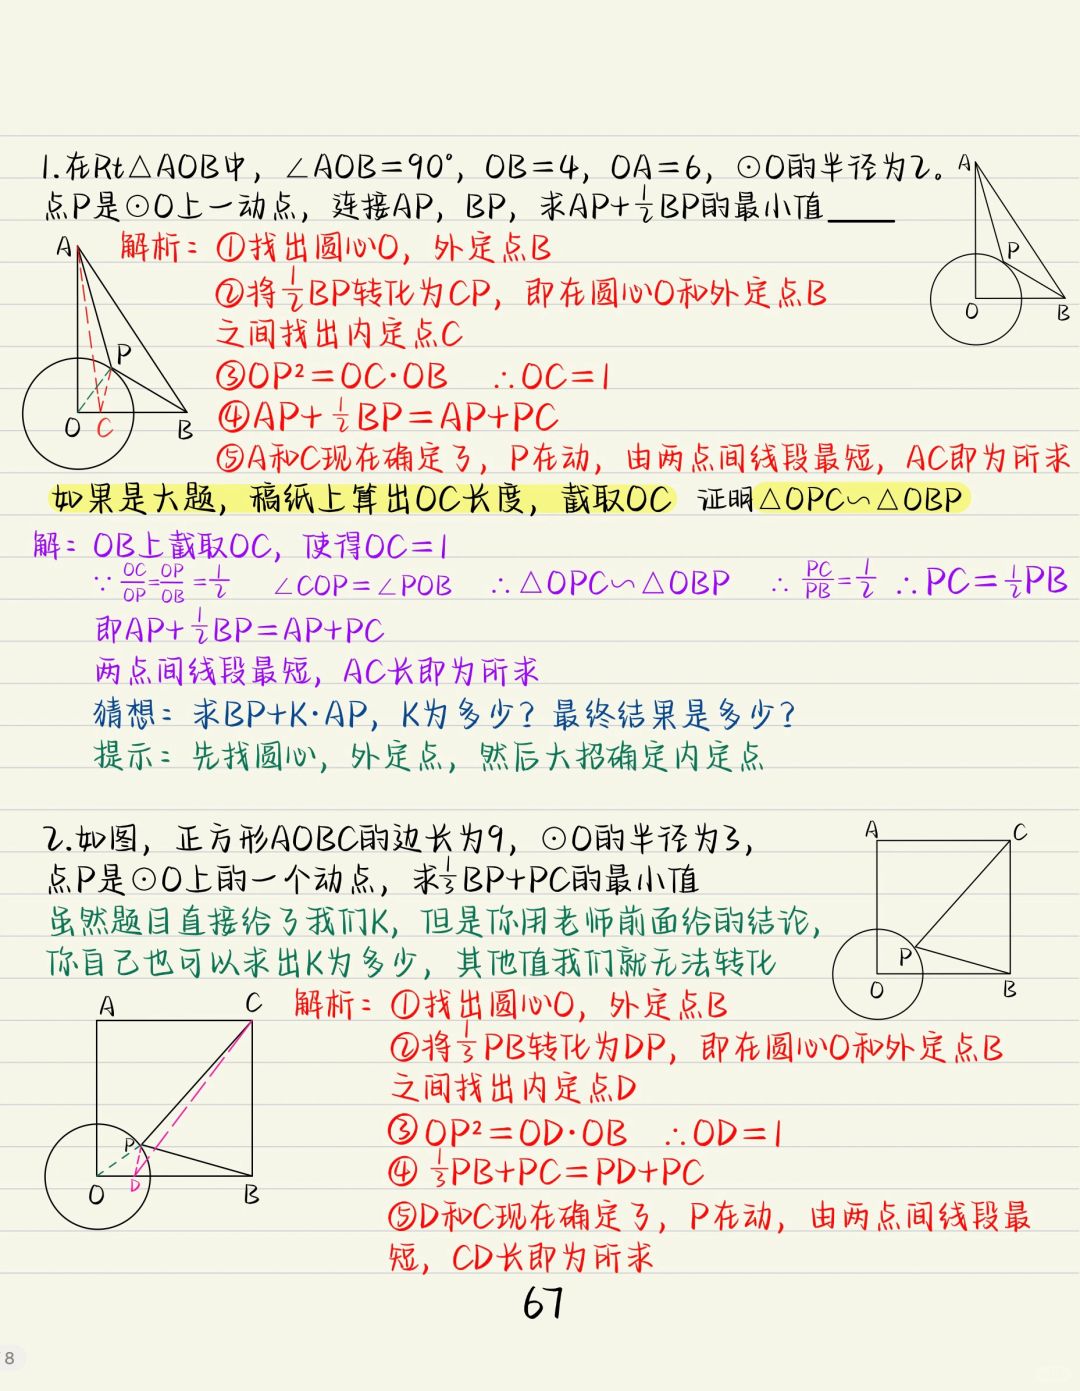 1.在Rt△AOB中，∠AOB=90°，OB=4，OA=6，⊙O的半径为2。
点P是⊙O上一动点，连接AP，BP，求AP+1/2BP的最小值____
A
P
O
B
解析：①找出圆心O，外定点B
②将1/2BP转化为CP，即在圆心O和外定点B
之间找出内定点C
③OP²=OC·OB ∴OC=1
④AP+1/2BP=AP+PC
⑤A和C现在确定了，P在动，由两点间线段最短，AC即为所求
A
P
O
C
B
如果是大题，稿纸上算出OC长度，截取OC 证明△OPC∽△OBP
解：OB上截取OC，使得OC=1
∵OC/OP=OP/OB=1/2 ∠COP=∠POB ∴△OPC∽△OBP ∴PC/PB=1/2 ∴PC=1/2PB
即AP+1/2BP=AP+PC
两点间线段最短，AC长即为所求
猜想：求BP+K·AP，K为多少？最终结果是多少？
提示：先找圆心，外定点，然后大招确定内定点
2.如图，正方形AOBC的边长为9，⊙O的半径为3，
点P是⊙O上的一个动点，求1/3BP+PC的最小值
A
C
P
O
B
虽然题目直接给了我们K，但是你用老师前面给的结论，
你自己也可以求出K为多少，其他值我们就无法转化
A
C
P
O
D
B
解析：①找出圆心O，外定点B
②将1/3PB转化为DP，即在圆心O和外定点B
之间找出内定点D
③OP²=OD·OB ∴OD=1
④1/3PB+PC=PD+PC
⑤D和C现在确定了，P在动，由两点间线段最
短，CD长即为所求
67
8